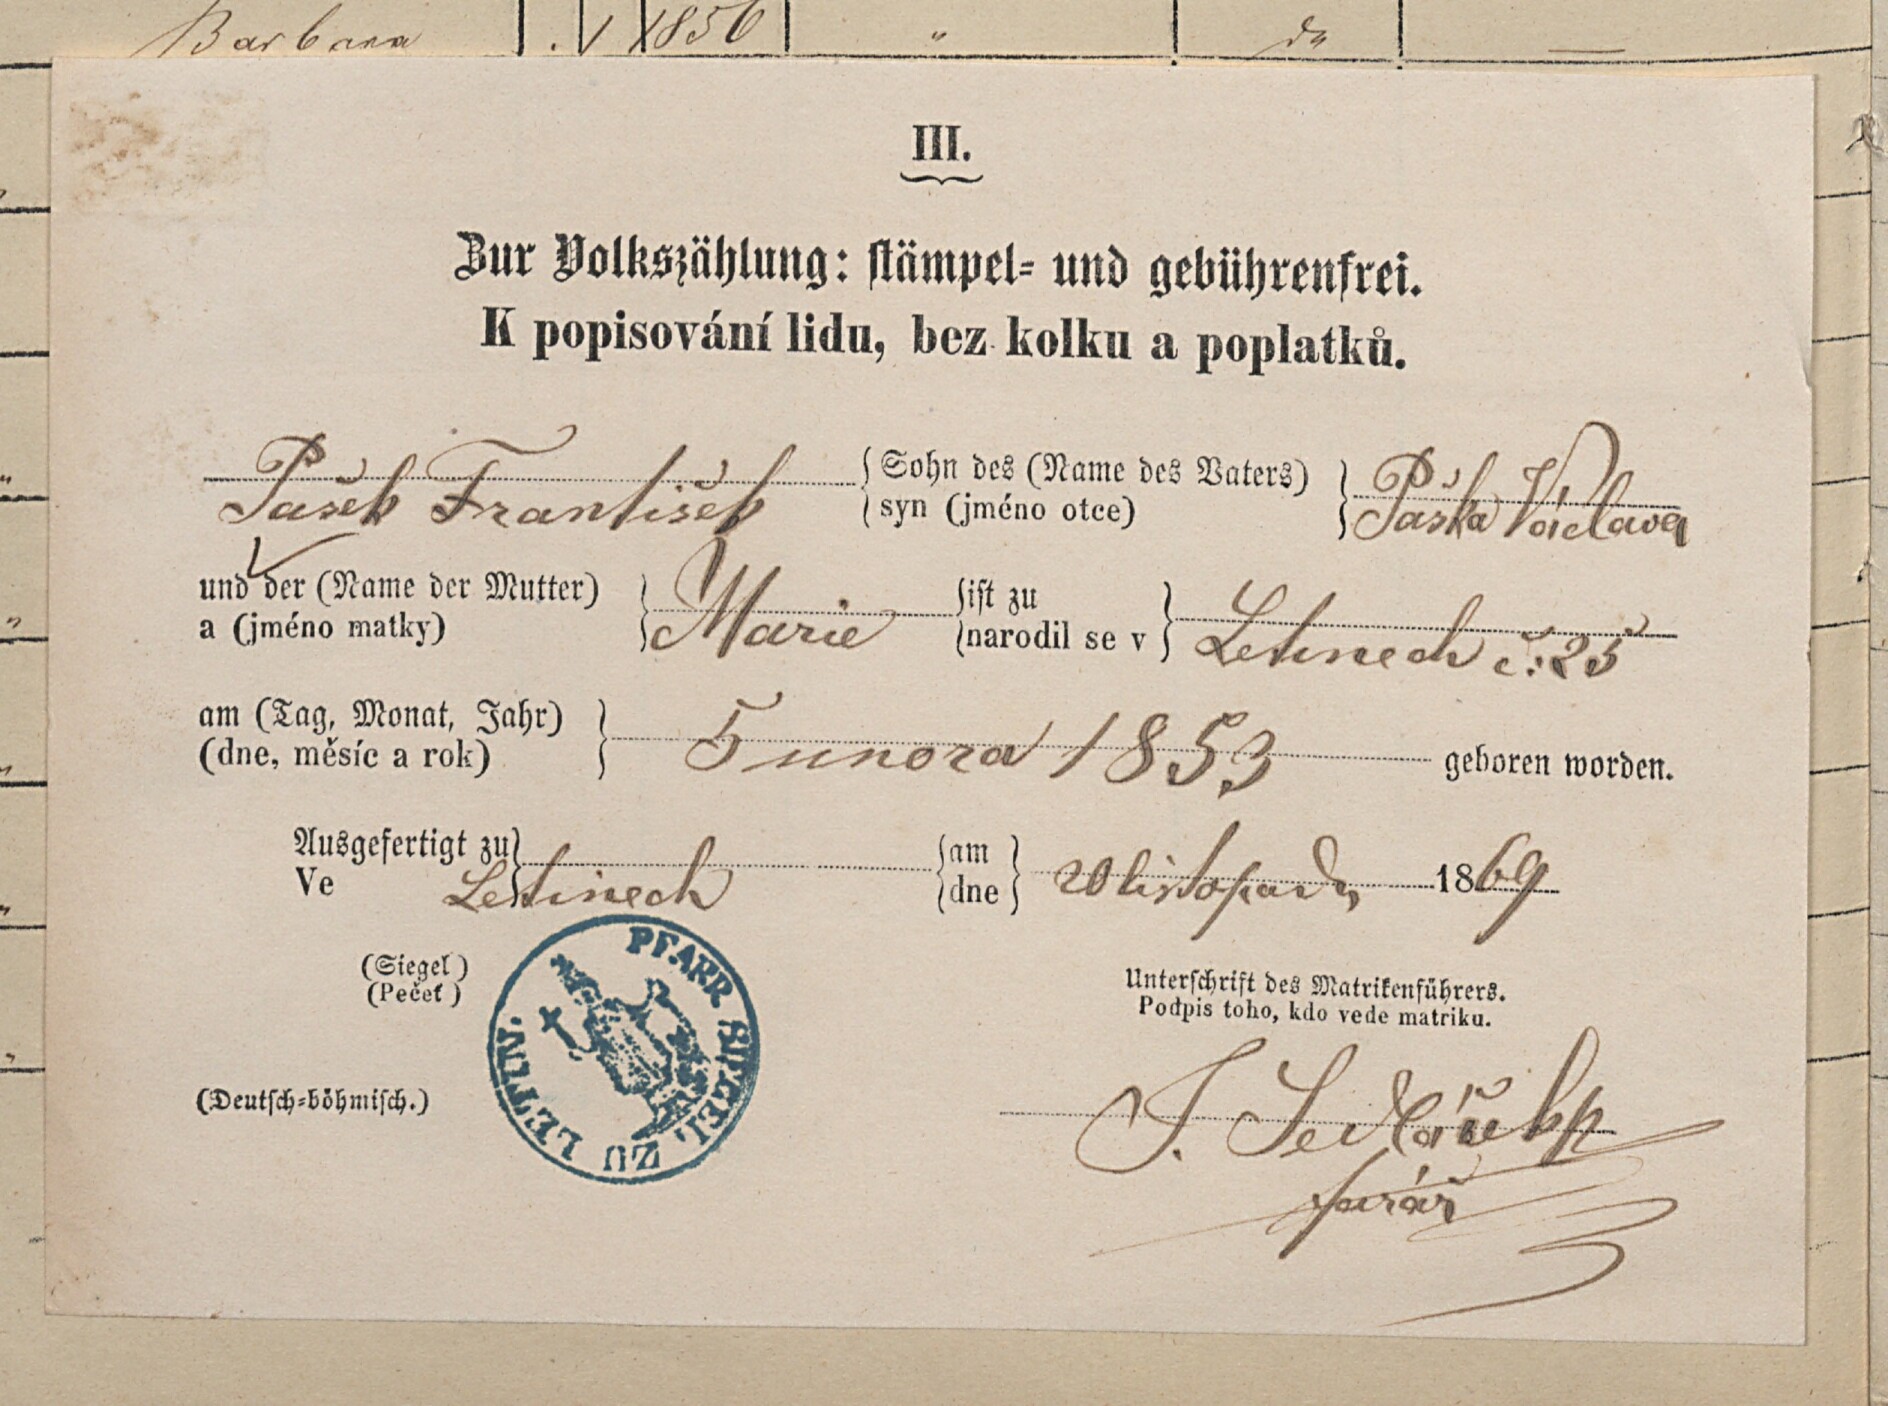 Barbara . 1 1856 " do —
III.
Zur Volkszählung: stämpel- und gebührenfrei.
K popisování lidu, bez kolku a poplatků.
Pašek František { Sohn des (Name des Vaters) syn (jméno otce) } Paška Václava
und der (Name der Mutter) a (jméno matky) } Marie { ist zu narodil se v } Letinech č. 25
am (Tag, Monat, Jahr) (dne, měsíc a rok) } 5 unora 1853 geboren worden.
Ausgefertigt zu Ve } Letinech { am dne } 20 listopadu 1869
(Siegel)
(Pečeť)
PFARR SIEGEL ZU LETIN.
Unterschrift des Matrikenführers.
Podpis toho, kdo vede matriku.
(Deutsch-böhmisch.)
J. Sedláček
farář